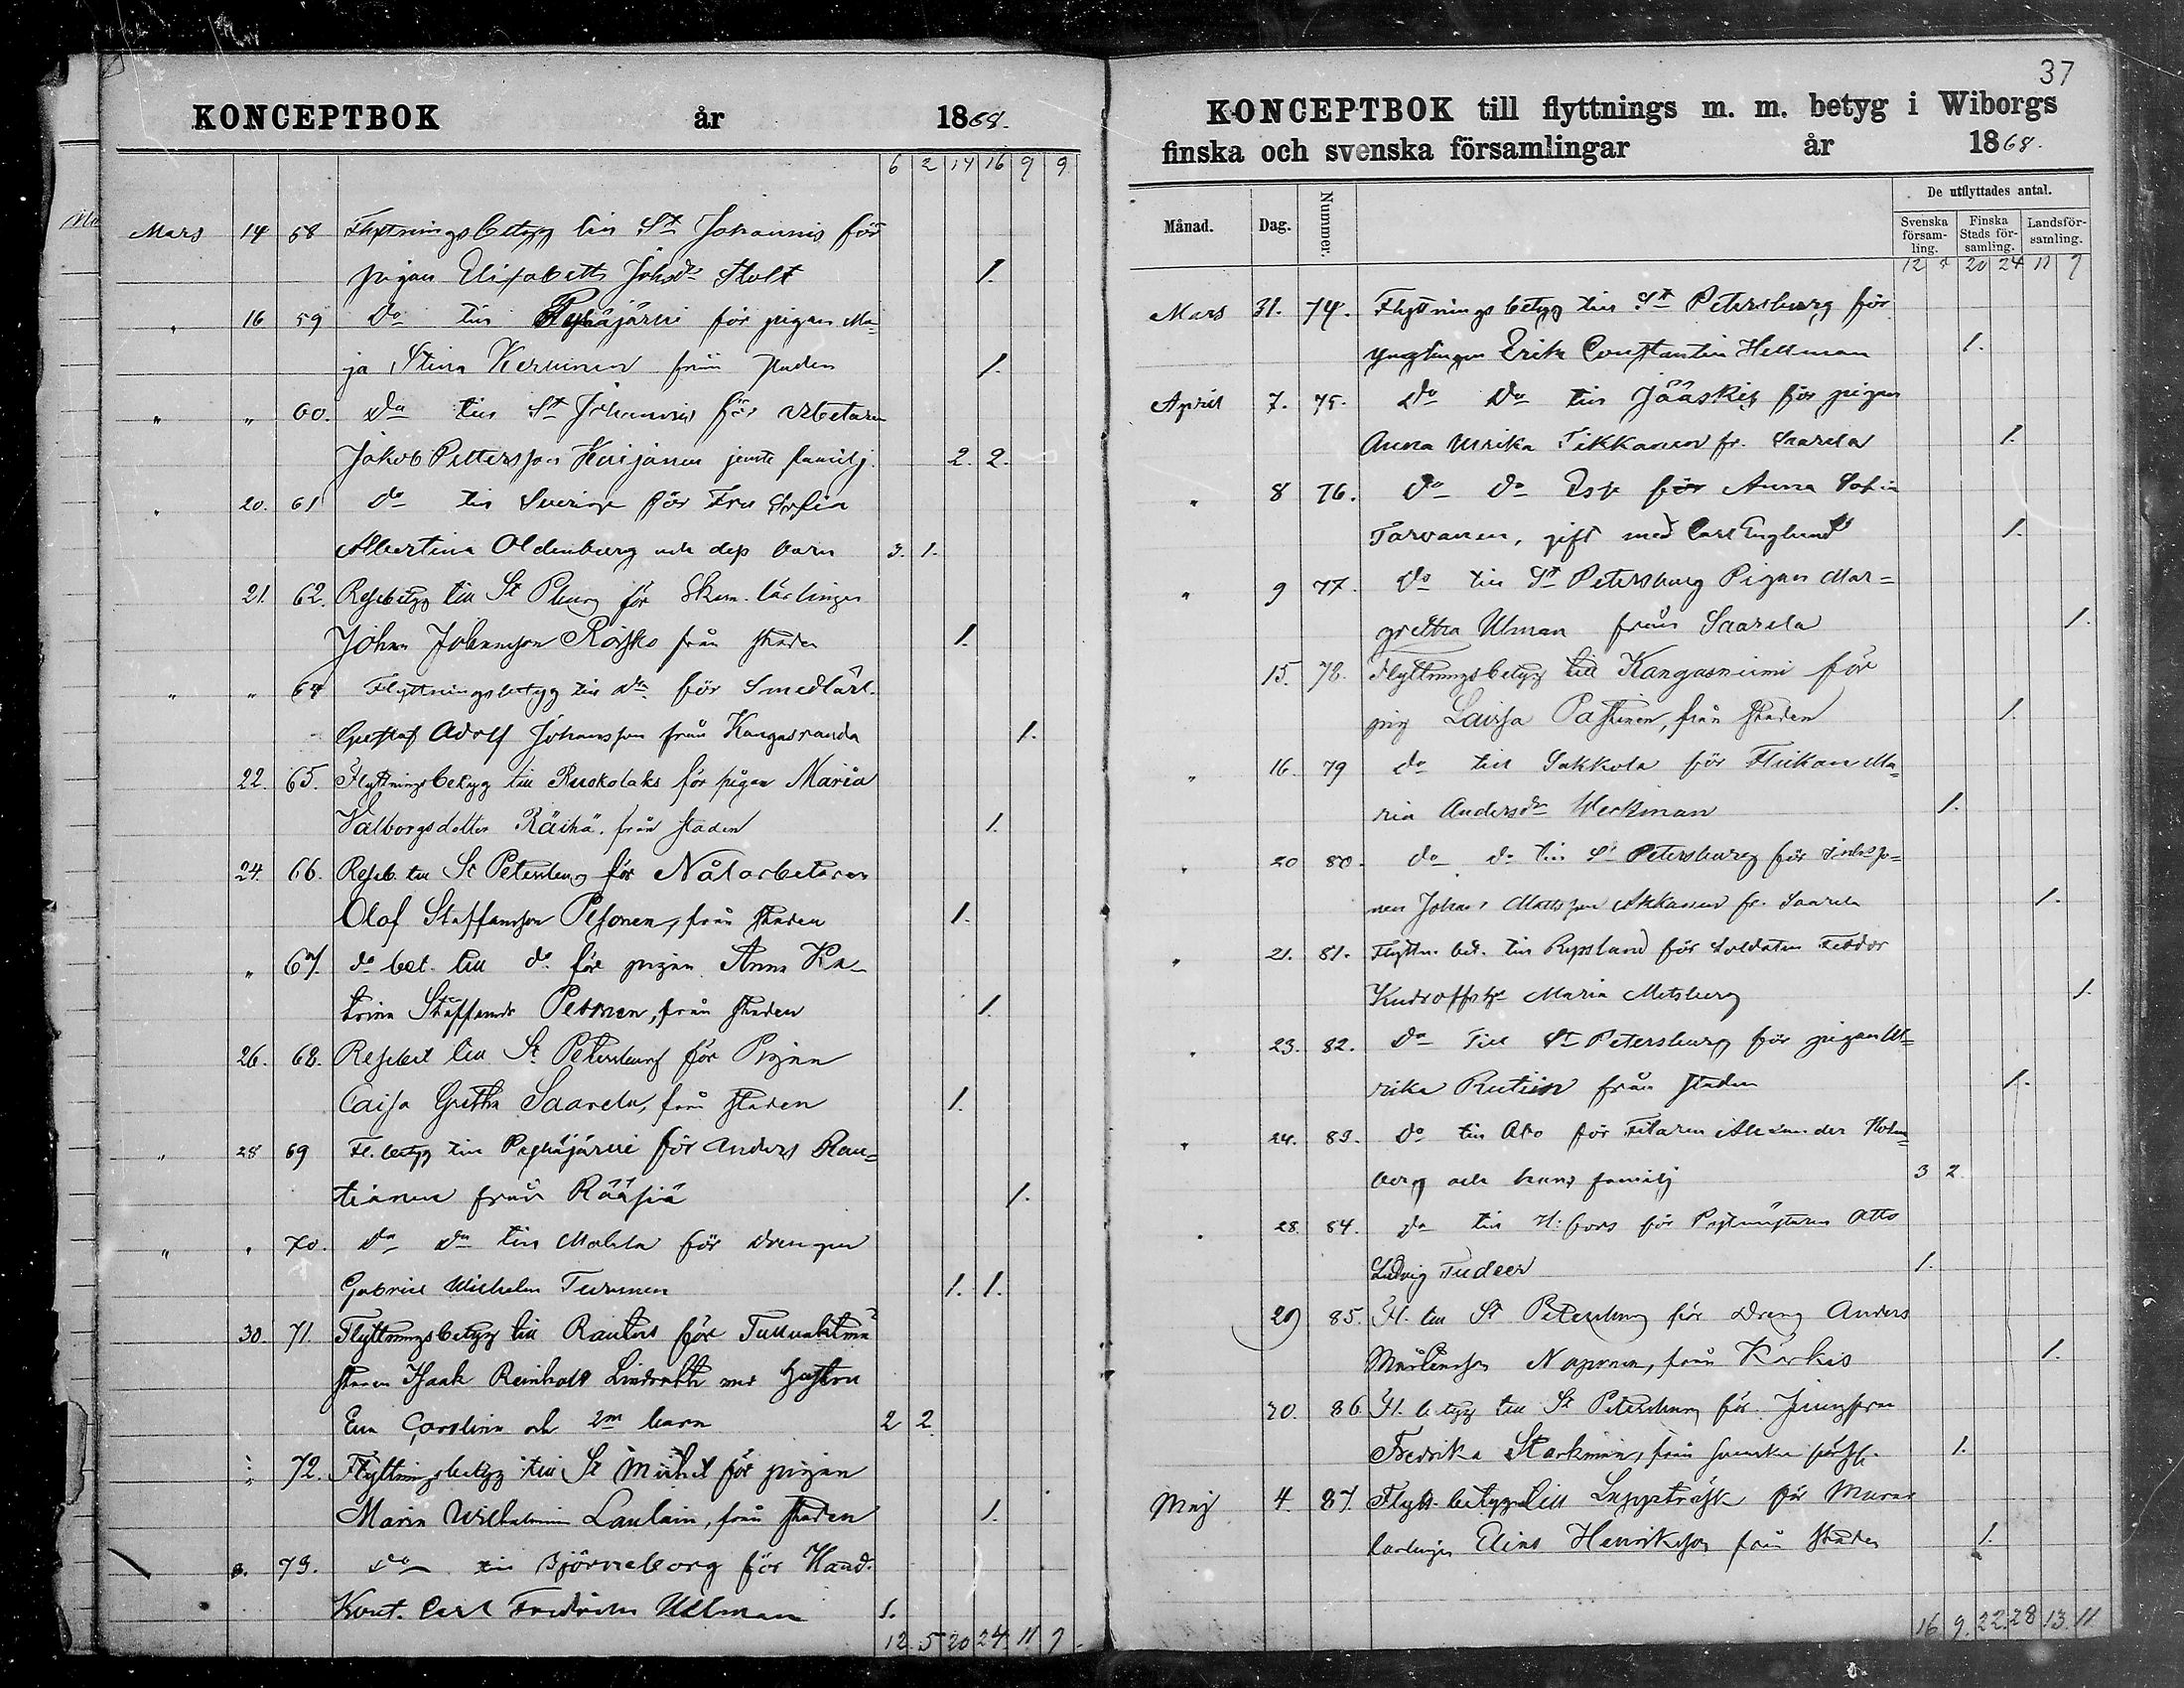 KONCEPTBOK år 1868.
6 2 14 16 9 9
Mars 14 58 Flyttningsbetyg till St Johannis för
pigan Elisabeth Johsdr Stolt 1.
" 16 59 do till Pyhäjärvi för pigan Ma-
ja Stina Kervinen från staden 1.
" " 60. do till St Johannis för arbetaren
Jakob Pettersson Häijänen jemte familj. 2. 2.
" 20. 61 do till Sverige för Fru Sofia
Albertina Oldenburg och dess barn 3. 1.
21. 62. Resebetyg till St Pburg för Skom. lärlingen
Johan Johansson Roisko från staden 1.
" " 64 Flyttningsbetyg till do för Smedlärl.
Gustaf Adolf Johansson från Kangasranda 1.
22. 65. Flyttningsbetyg till Ruokolaks för pigan Maria
Valborgsdotter Räihä, från staden 1.
24. 66. Reseb. till St Petersburg för Nålarbetaren
Olof Staffansson Pesonen, från staden 1.
" 67. do bet. till do för pigan Anna Ka-
trina Staffansdr Pesonen, från staden 1.
26. 68. Resebet till St Petersburg för Pigan
Caisa Gretha Saarela, från staden 1.
" 28 69 Fl. betyg till Pyhäjärvi för Anders Rau-
tiainen från Rääsiä 1.
" " 70. do do till Mohla för drengen
Gabriel Wilhelm Turunen 1. 1.
30. 71. Flyttningsbetyg till Rautus för Tullvaktmä
staren Isaak Reinhold Lindroth med hustru
Eva Carolina och 2ne barn 2 2
" 72. Flyttningsbetyg till St Michel för pigan
Maria Wilhelmina Laulain, från staden 1.
73. do till Björneborg för Hand.
Kont. Carl Fredrik Ullman 1.
12. 5 20 24 11 9.
37
KONCEPTBOK till flyttnings m. m. betyg i Wiborgs
finska och svenska församlingar år 1868.
Månad. Dag. Nummer. De utflyttades antal.
Svenska församling. Finska Stads församling. Landsförsamling.
12 5 20 24 11 9
Mars 31. 74. Flyttningsbetyg till St Petersburg för
ynglingen Erik Constantin Hellman 1.
April 7. 75. do do till Jääskis för pigan
Anna Ulrika Tikkanen fr. Saarela 1.
" 8 76. do do Esse för Anna Sofia
Tarvanen, gift med Carl Englund 1.
" 9 77. do till St Petersburg Pigan Mar-
gretha Ulman från Saarela 1.
15. 78. Flyttningsbetyg till Kangasniemi för
pig Laisa Pastinen, från staden 1.
" 16. 79 do till Sakkola för Flickan Ma-
ria Andersdr Weckman 1.
" 20 80. do do till St Petersburg för
nen Johan Mattsson Akkanen fr. Saarela 1.
" 21. 81. Flyttn. bet. till Ryssland för Soldaten Feodor
Kudroffs Maria Metsberg 1.
" 23. 82. do till St Petersburg för pigan Ul-
rika Rutin från staden 1.
" 24. 83. do till Abo för Alexander Holm-
berg och hans familj 3 2.
" 28. 84. do till H:fors för Postmästaren Otto
Ludvig Tudeer 1.
29 85. Fl. till St Petersburg för Dreng Anders
Mårtensson Naponen, från Kärkis 1.
30. 86. Fl. betyg till St Petersburg för Jungfrun
Fredrika Starkman, från svenska förs. 1.
Maj 4 87. Flytt. betyg till Lappträsk för Murar
lärlingen Elias Henriksson från staden 1.
16 9. 22. 28 13. 11